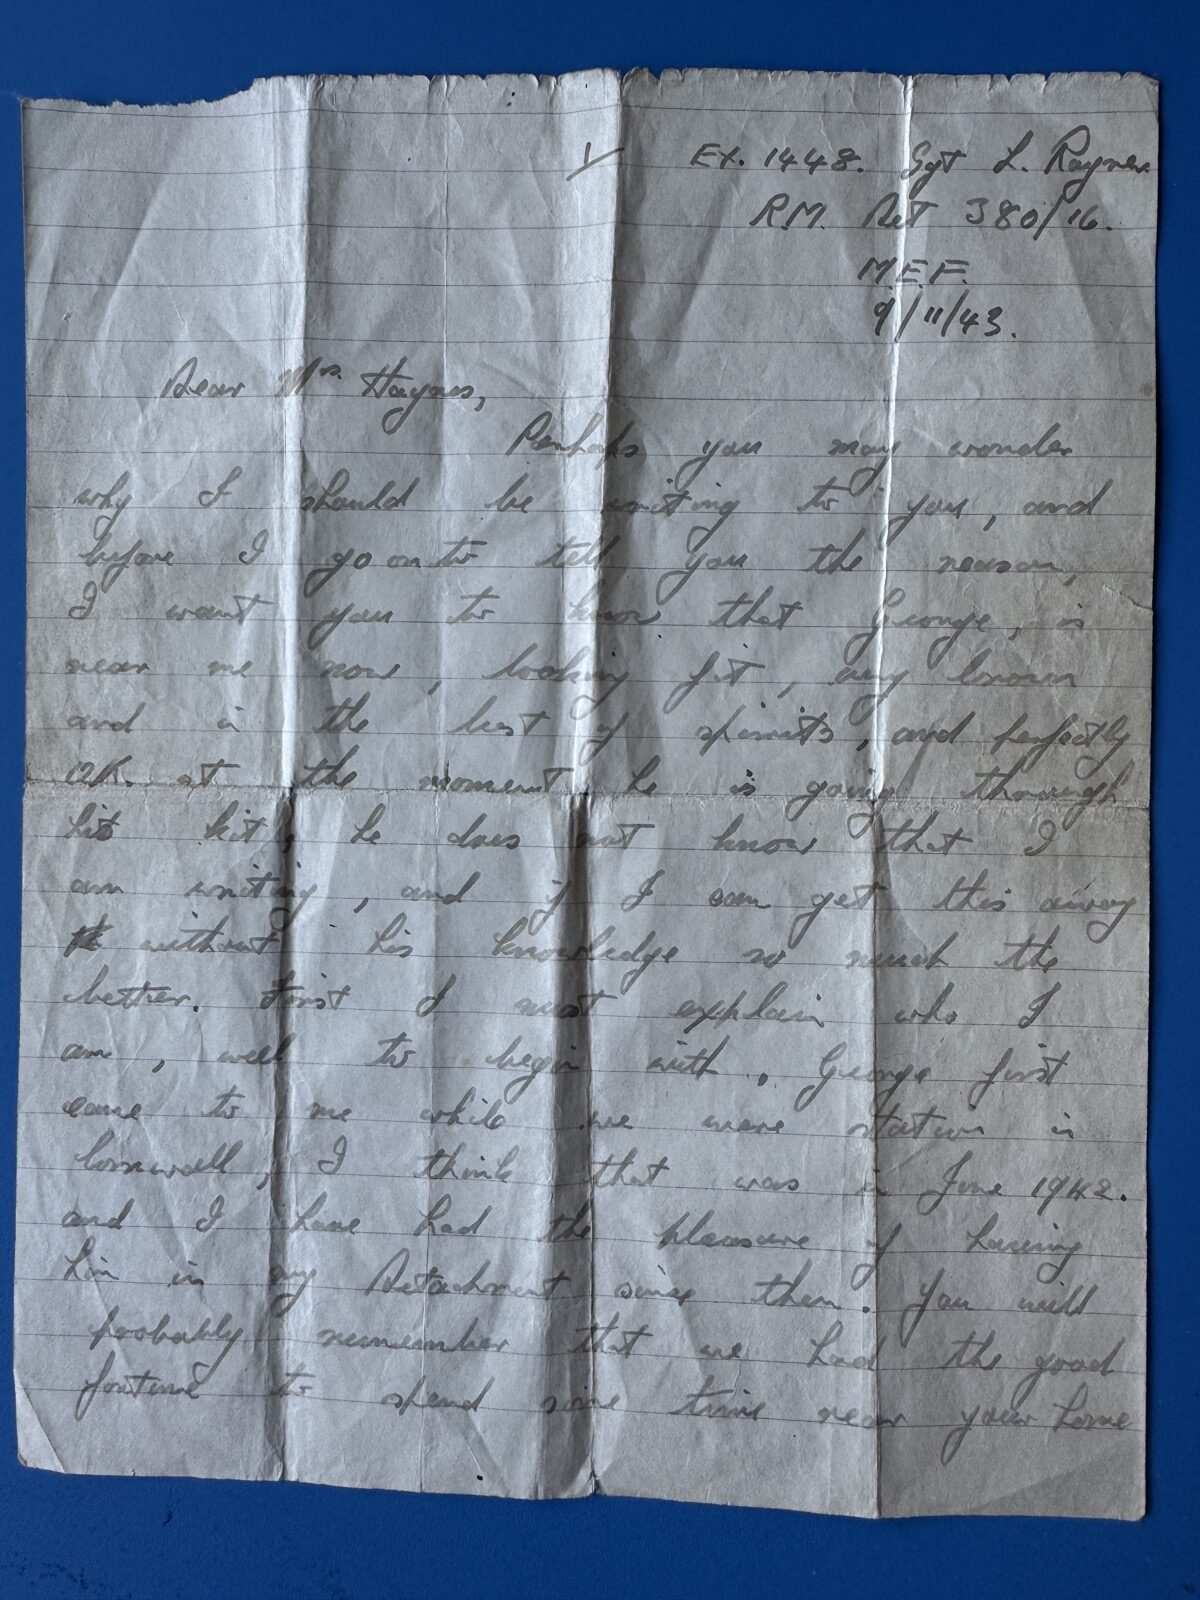 Ex. 1448. Sgt L. Rayner
R.M. Det 380/16.
M.E.F.
9/11/43.
Dear Mrs. Haynes,
Perhaps you may wonder
why I should be writing to you, and
before I go on to tell you the reason,
I want you to know that George, is
near me now, looking fit, very brown
and in the best of spirits, and perfectly
OK. at the moment he is going through
his kit, he does not know that I
am writing, and if I can get this away
without his knowledge so much the
better. First I must explain who I
am, well to begin with, George first
came to me while we were station in
Cornwall, I think that was in June 1942.
and I have had the pleasure of having
him in my Detachment since then. You will
probably remember that we had the good
fortune to spend some time near your home